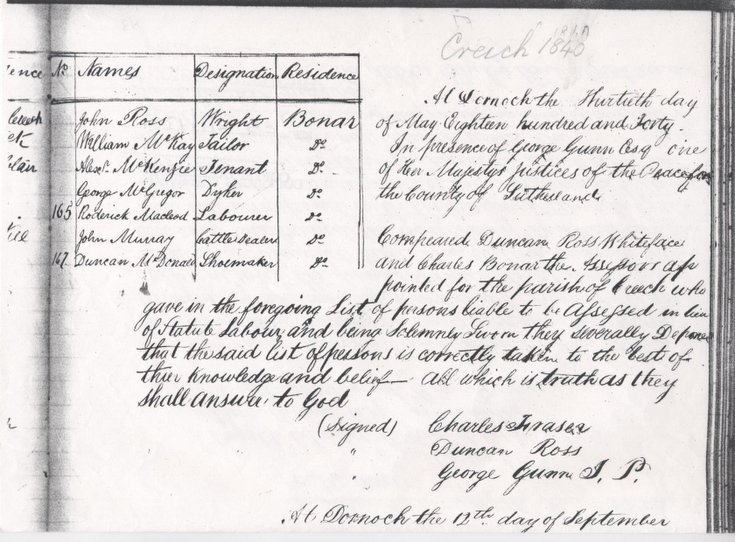 Creich 1840
ence No. Names Designation Residence
John Ross Wright Bonar
William McKay Tailor Do
Alexr. McKenzie Tenant Do
George McGregor Dyker Do
165 Roderick Macleod Labourer Do
John Murray Cattle Dealer Do
167 Duncan McDonald Shoemaker Do
At Dornoch the Thirtieth day
of May Eighteen hundred and Forty.
In presence of George Gunn Esq one
of Her Majestys Justices of the Peace for
the County of Sutherland
Compeared Duncan Ross Whiteface
and Charles Bonar the Assessors ap
pointed for the parish of Creech who
gave in the foregoing List of persons liable to be Assessed in lieu
of Statute Labour, and being Solemnly Sworn they severally Depone
that the said list of persons is correctly taken to the best of
their Knowledge and belief— All which is truth as they
shall answer to God
(Signed) Charles Fraser
" Duncan Ross
" George Gunn J. P.
At Dornoch the 12th day of September